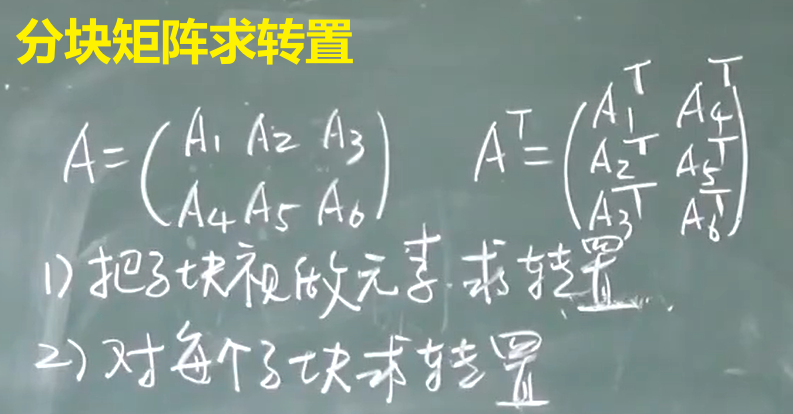 分块矩阵求转置
A=(A₁ A₂ A₃ Aᵀ=(A₁ᵀ A₄ᵀ
A₄ A₅ A₆) A₂ᵀ A₅ᵀ
A₃ᵀ A₆ᵀ)
1) 把子块视做元素.求转置
2) 对每个子块求转置